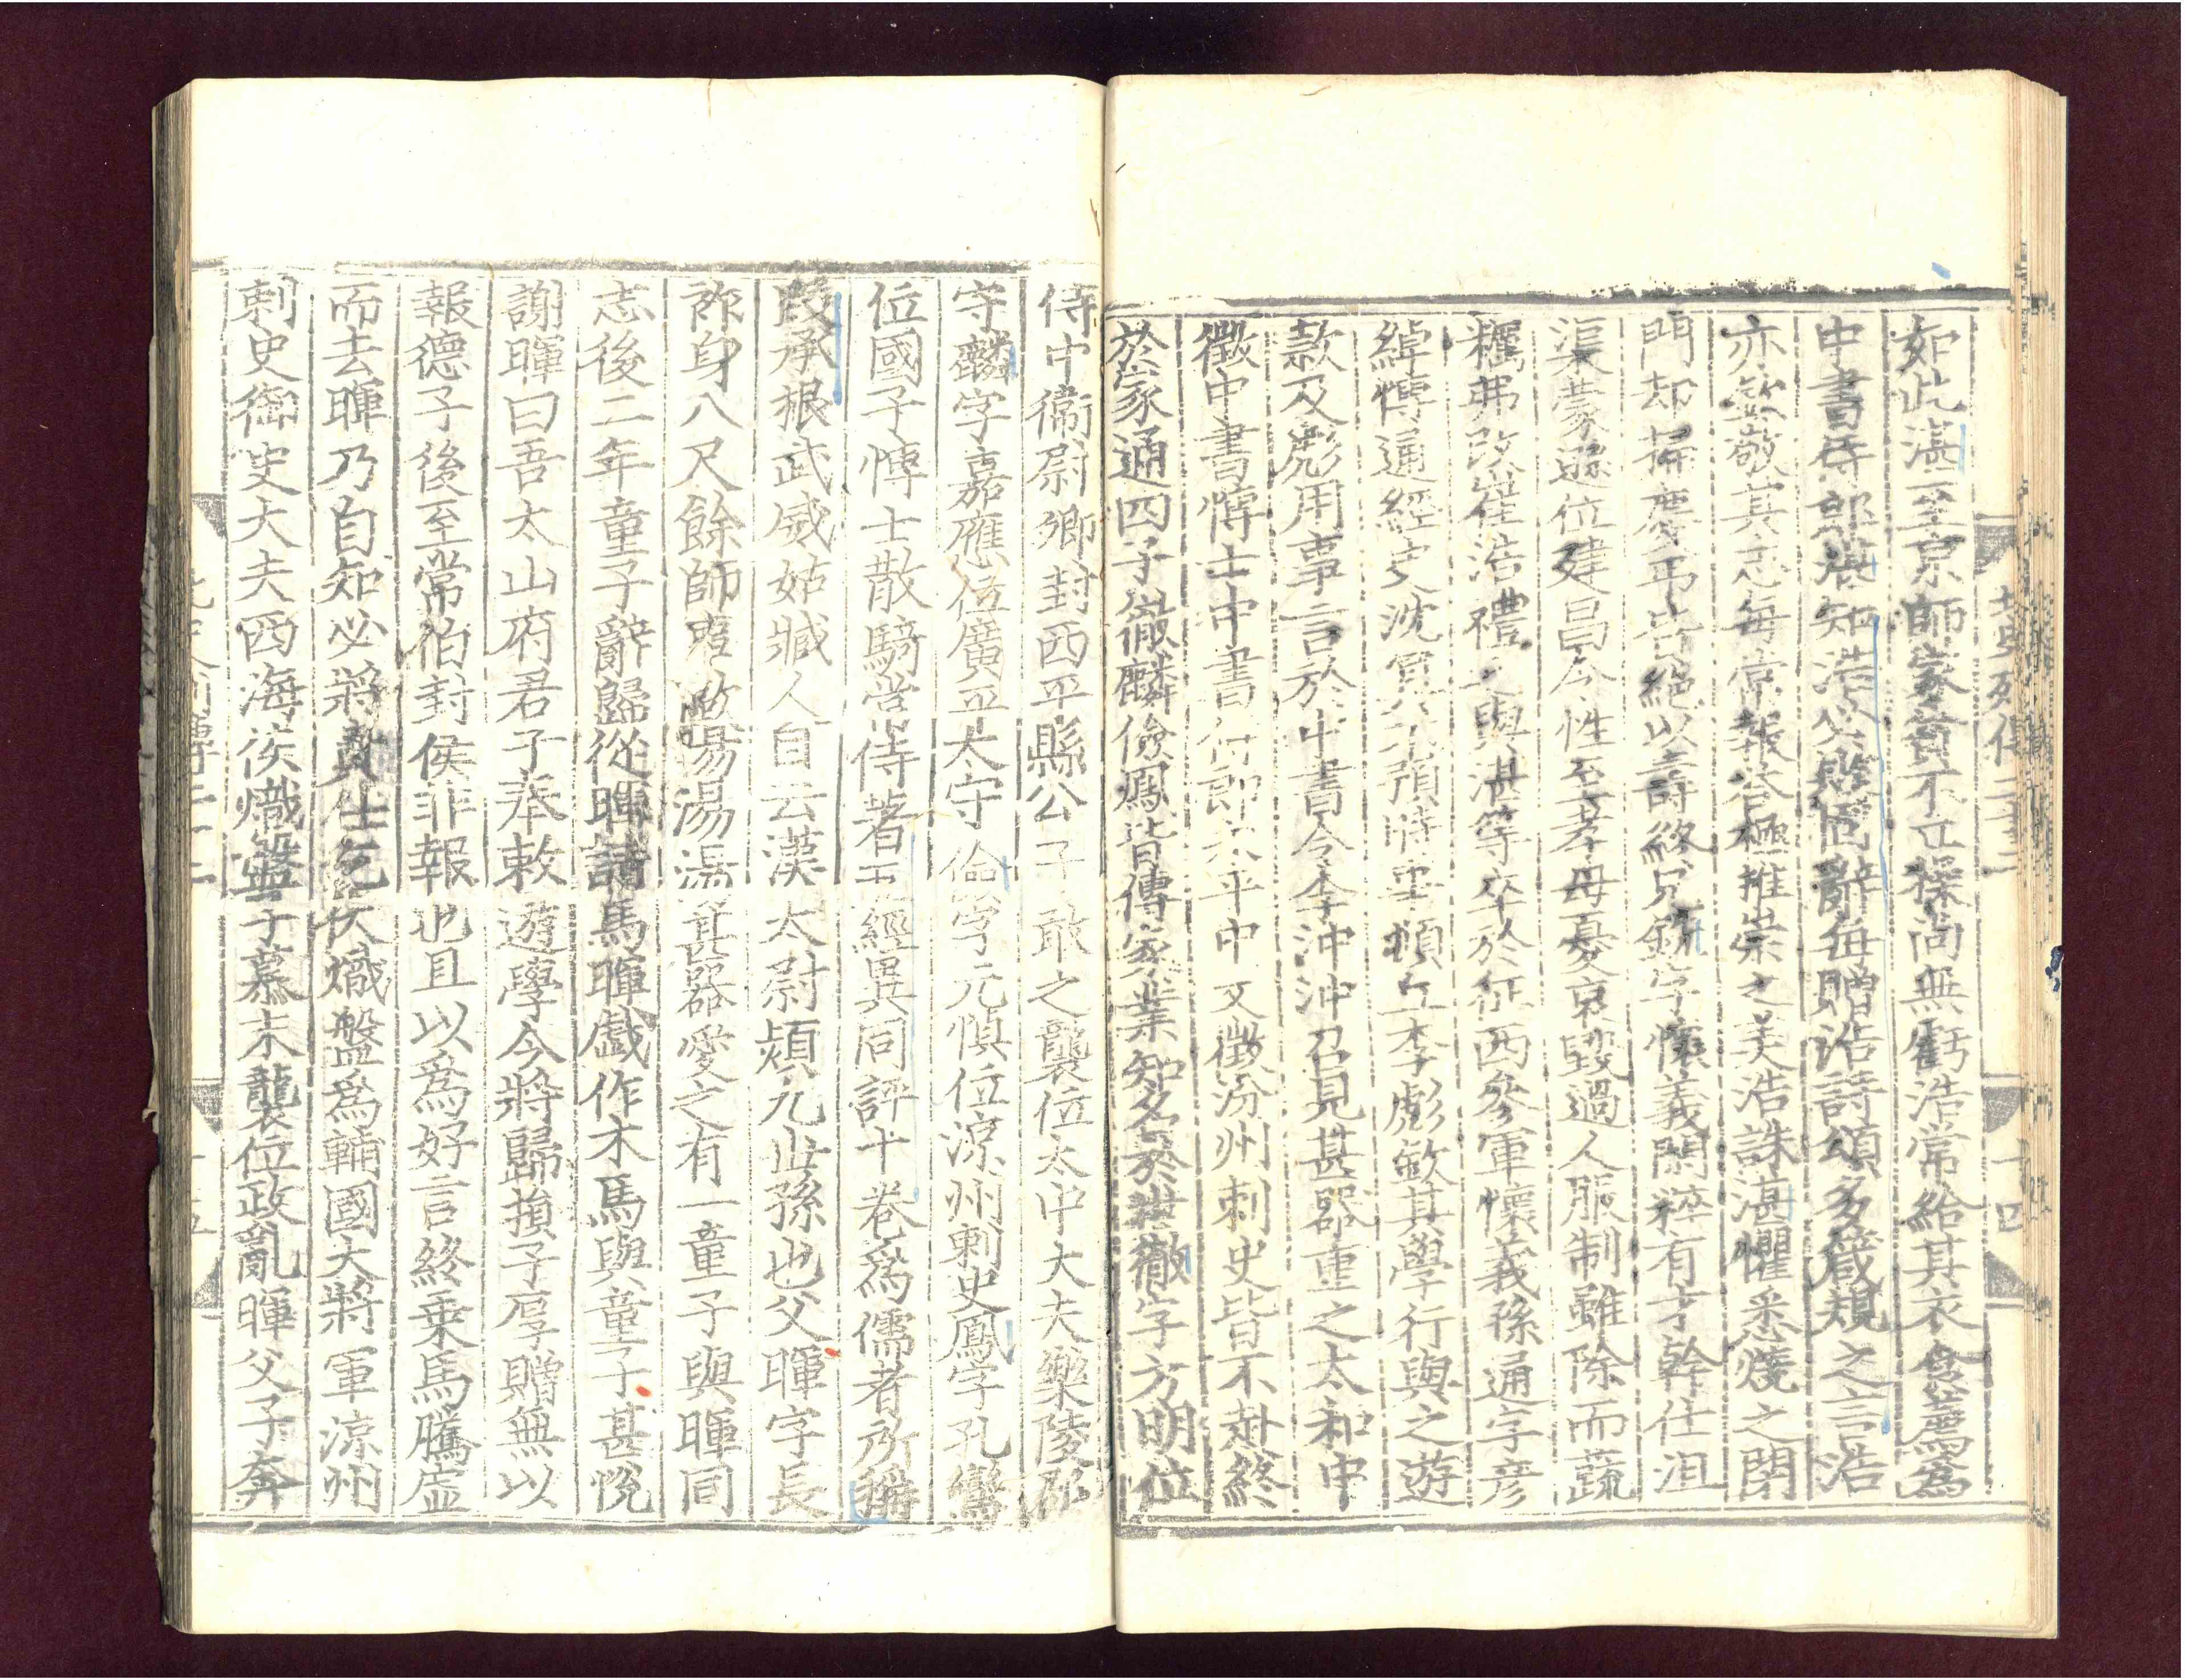 北史列傳二十二
十四
如此湛至京師家貧不立操尚無虧浩常給其衣食薦爲
中書侍郎湛知浩必敗固辭每贈浩詩頌多箴規之言浩
亦欽敬其志每常報答極推崇之美浩誅湛懼悉燒之閉
門却掃慶弔皆絶以壽終兄銑字懷義閑粹有才幹仕沮
渠蒙遜位建昌令性至孝母憂哀毀過人服制雖除而蔬
糲弗改崔浩禮之與湛等卒於征西參軍懷義孫通字彦
綽博通經史沈冥不預時事頓丘李彪欽其學行與之遊
款及彪用事言於中書令李沖沖召見甚器重之太和中
徵中書博士中書侍郎永平中又徵汾州刺史皆不赴終
於家通四子徹麟儉鳳皆傳家業知名於世徹字方明位
侍中衞尉卿封西平縣公子敢之襲位太中大夫樂陵郡
守麟字嘉應位廣平太守儉字元慎位涼州刺史鳳字孔鸞
位國子博士散騎常侍著五經異同評十卷爲儒者所稱
段承根武威姑臧人自云漢太尉熲九世孫也父暉字長
祚身八尺餘師事歐陽湯湯甚器愛之有一童子與暉同
志後二年童子辭歸從暉請馬暉戲作木馬與童子甚悅
謝暉曰吾太山府君子奉敕遊學今將歸損子厚贈無以
報德子後至常伯封侯非報也且以爲好言終乘馬騰虛
而去暉乃自知必將貴仕乞伏熾盤爲輔國大將軍涼州
刺史御史大夫西海侯熾盤子慕末襲位政亂暉父子奔